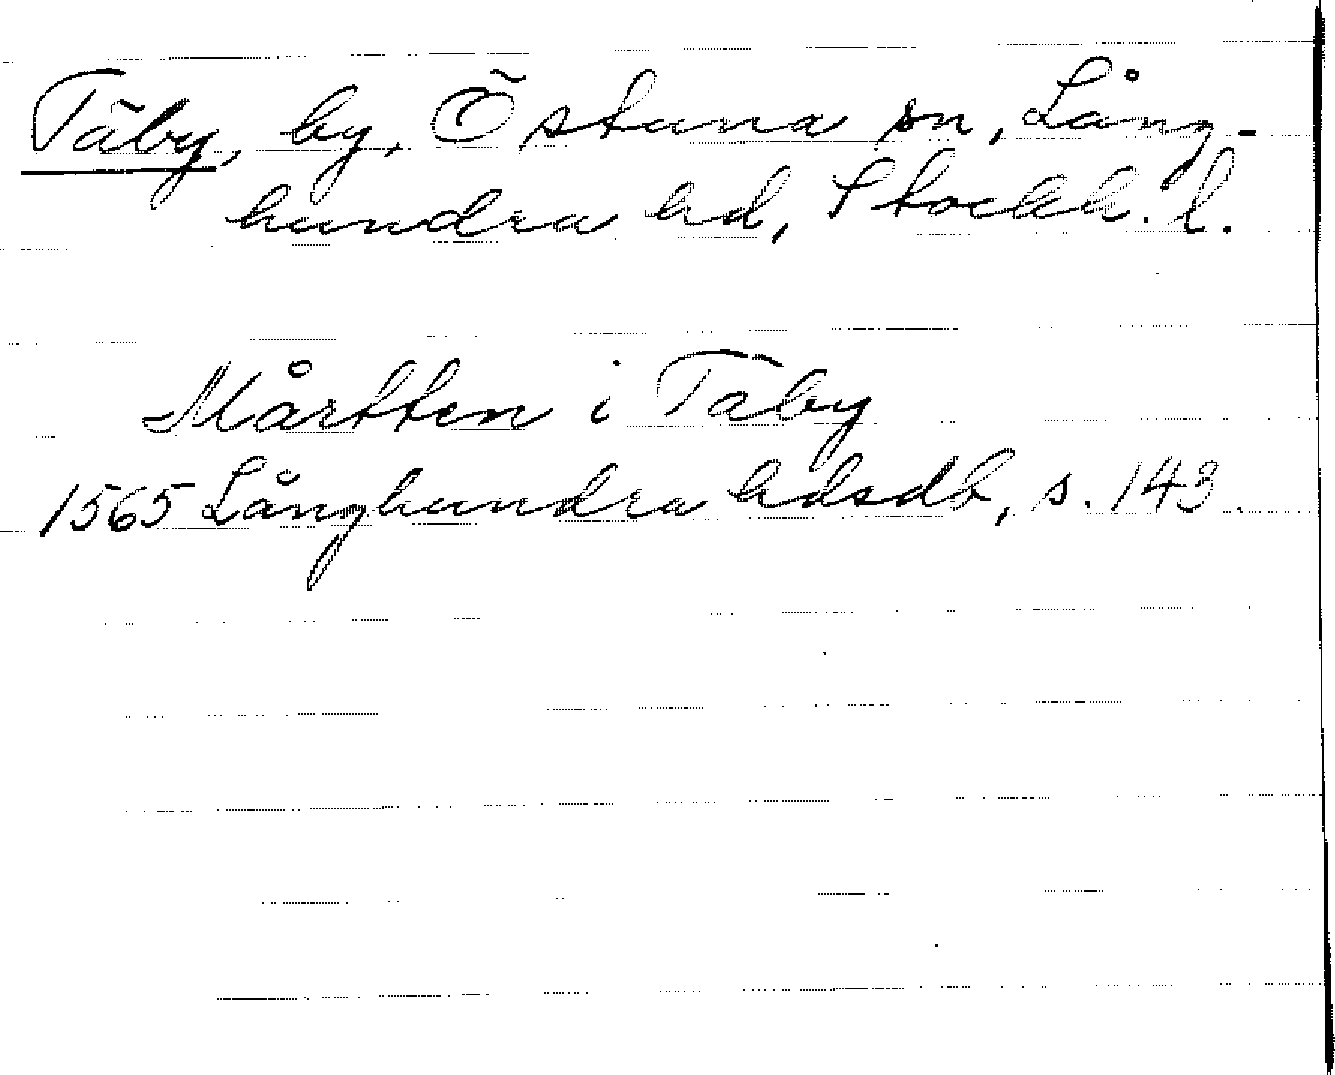 Täby, by, Östuna sn, Lång-
hundra hd, Stockh. l.
Mårtten i Täby
1565 Långhundra hdsdb, s. 143.